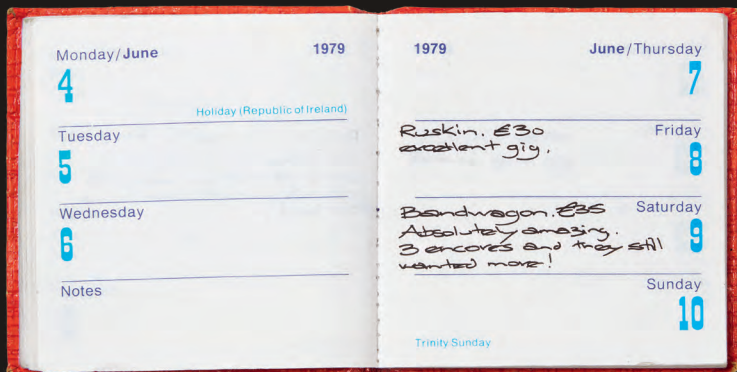 Monday/June 1979
4
Holiday (Republic of Ireland)
Tuesday
5
Wednesday
6
Notes
1979 June/Thursday
7
Ruskin. £30
excellent gig.
Friday
8
Bandwagon. £35
Absolutely amazing.
3 encores and they still
wanted more!
Saturday
9
Sunday
10
Trinity Sunday